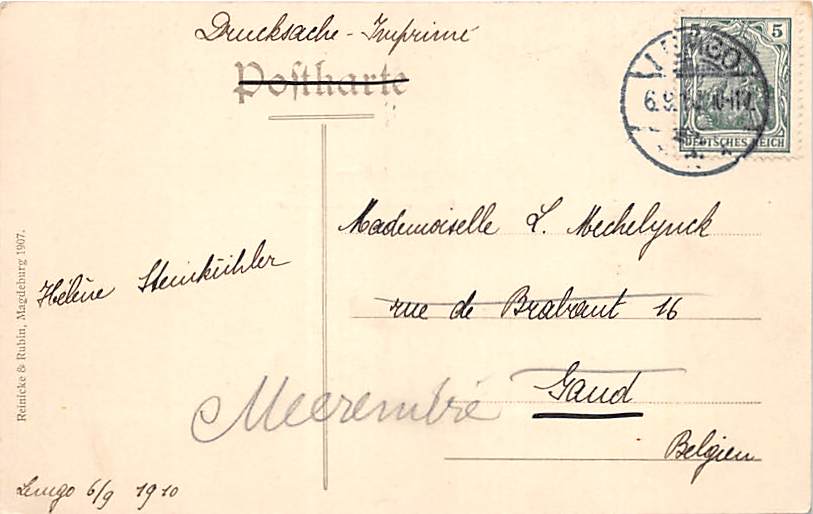 Drucksache - Imprimé
Postkarte
5 5
LEMGO
6.9.
DEUTSCHES REICH
Mademoiselle L. Mechelynck
Hélène Steinkühler
rue de Brabant 16
Gand
Meerembré
Belgien
Lemgo 6/9 1910
Reinicke & Rubin, Magdeburg 1907.